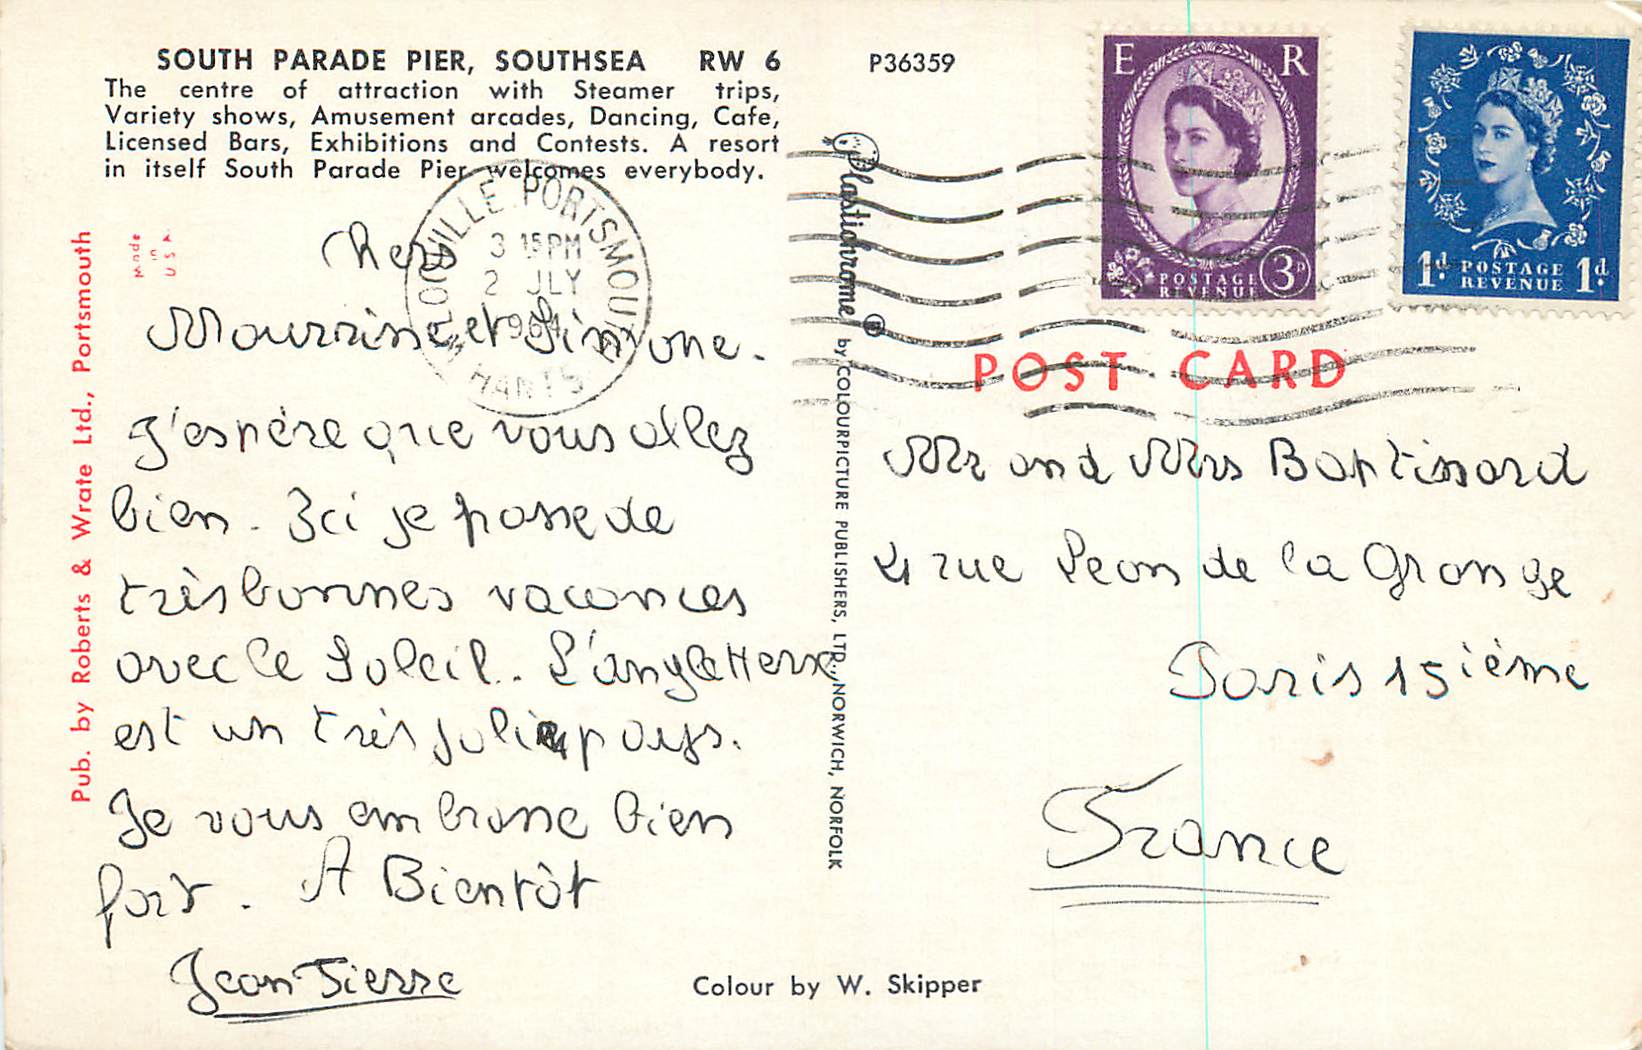 SOUTH PARADE PIER, SOUTHSEA RW 6
The centre of attraction with Steamer trips,
Variety shows, Amusement arcades, Dancing, Cafe,
Licensed Bars, Exhibitions and Contests. A resort
in itself South Parade Pier welcomes everybody.
P36359
E R
POSTAGE
REVENUE
3D
1d. POSTAGE 1d.
REVENUE
PORTSMOUTH
HANTS
3 15 PM
2 JLY
1964
Made
in
U S A
Pub. by Roberts & Wrate Ltd., Portsmouth
Plastichrome ®
by COLOURPICTURE PUBLISHERS, LTD., NORWICH, NORFOLK
POST CARD
Chers
et Simone.
J'espère que vous allez
bien. Ici je passe de
très bonnes vacances
avec le Soleil.. L'angleterre
est un très joli pays.
Je vous embrasse bien
fort. A Bientôt
Jean Pierre
Mr and Mrs Baptissard
4 rue Leon de la Grange
Paris 15ième
France
Colour by W. Skipper